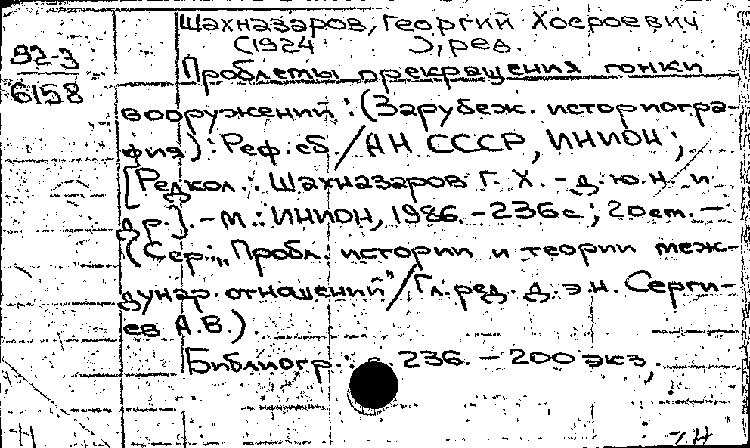 Шахназаров, Георгий Хосроевич
(1924 ), ред.
92-3
6158
Проблемы прекращения гонки
вооружений : (Зарубеж. историогра-
фия) : Реф. сб / АН СССР, ИНИОН ;
[Редкол.: Шахназаров Г. Х. - д.ю.н. и
др.]. - М.: ИНИОН, 1986. - 236 с ; 20 см. -
(Сер.: „Пробл. истории и теории меж-
дунар. отношений" / Гл. ред. д.э.н. Серги-
ев А.В.).
Библиогр.: с. 236. - 200 экз.